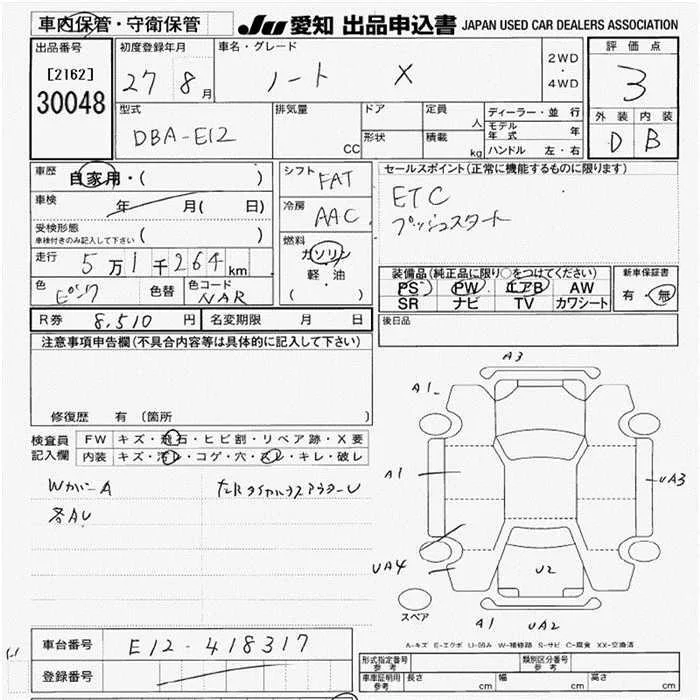 車内保管・守衛保管
JU 愛知 出品申込書 JAPAN USED CAR DEALERS ASSOCIATION
出品番号
[2162]
30048
初度登録年月
27 8月
車名・グレード
ノート X
2WD
・
4WD
評価点
3
外装 内装
D B
型式
DBA-E12
排気量
CC
ドア
形状
定員
人
積載
kg
ディーラー・並行
モデル年式 年
ハンドル 左・右
車歴
自家用・( )
車検
年 月( 日)
受検形態
車検付きのみ記入して下さい
( )
走行
5万1千264km
色
ピンク
色替
色コード
NAR
シフト
FAT
冷房
AAC
燃料
ガソリン
軽・油
( )
セールスポイント(正常に機能するものに限ります)
ETC
プッシュスタート
装備品(純正品に限り○をつけてください)
PS PW エアB AW
SR ナビ TV カワシート
新車保証書
有・無
R券 8,510 円
名変期限 月 日
後日品
注意事項申告欄(不具合内容等は具体的に記入して下さい)
修復歴 有 〔箇所 〕
検査員
記入欄
FW キズ・飛石・ヒビ割・リペア跡・X要
内装 キズ・汚レ・コゲ・穴・スレ・キレ・破レ
WカバーA
各AU
A3
A1
A1
UA3
UA4
U2
スペア
A1 UA2
A-キズ E-エクボ U-凹み W-補修跡 S-サビ C-腐食 XX-交換済
車台番号
E12-418317
登録番号
形式指定番号
参考
類別区分番号
参考
車庫証明用
参考
長さ cm
幅 cm
高さ cm